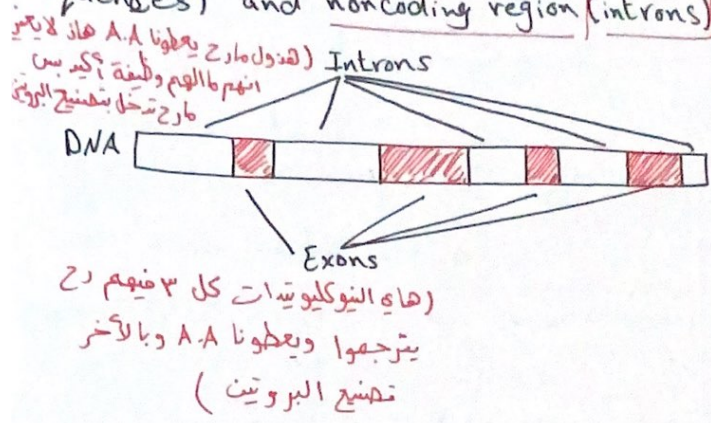 and noncoding region (introns)
(هذول مارح يعطونا A.A هاذ لا يعني
انهم ماالهم وظيفة أكيد بس
مارح تدخل بتصنيع البروتين
Introns
DNA
Exons
(هاي النيوكليوتيدات كل ٣ فيهم رح
يترجموا ويعطونا A.A وبالأخر
تصنيع البروتين)